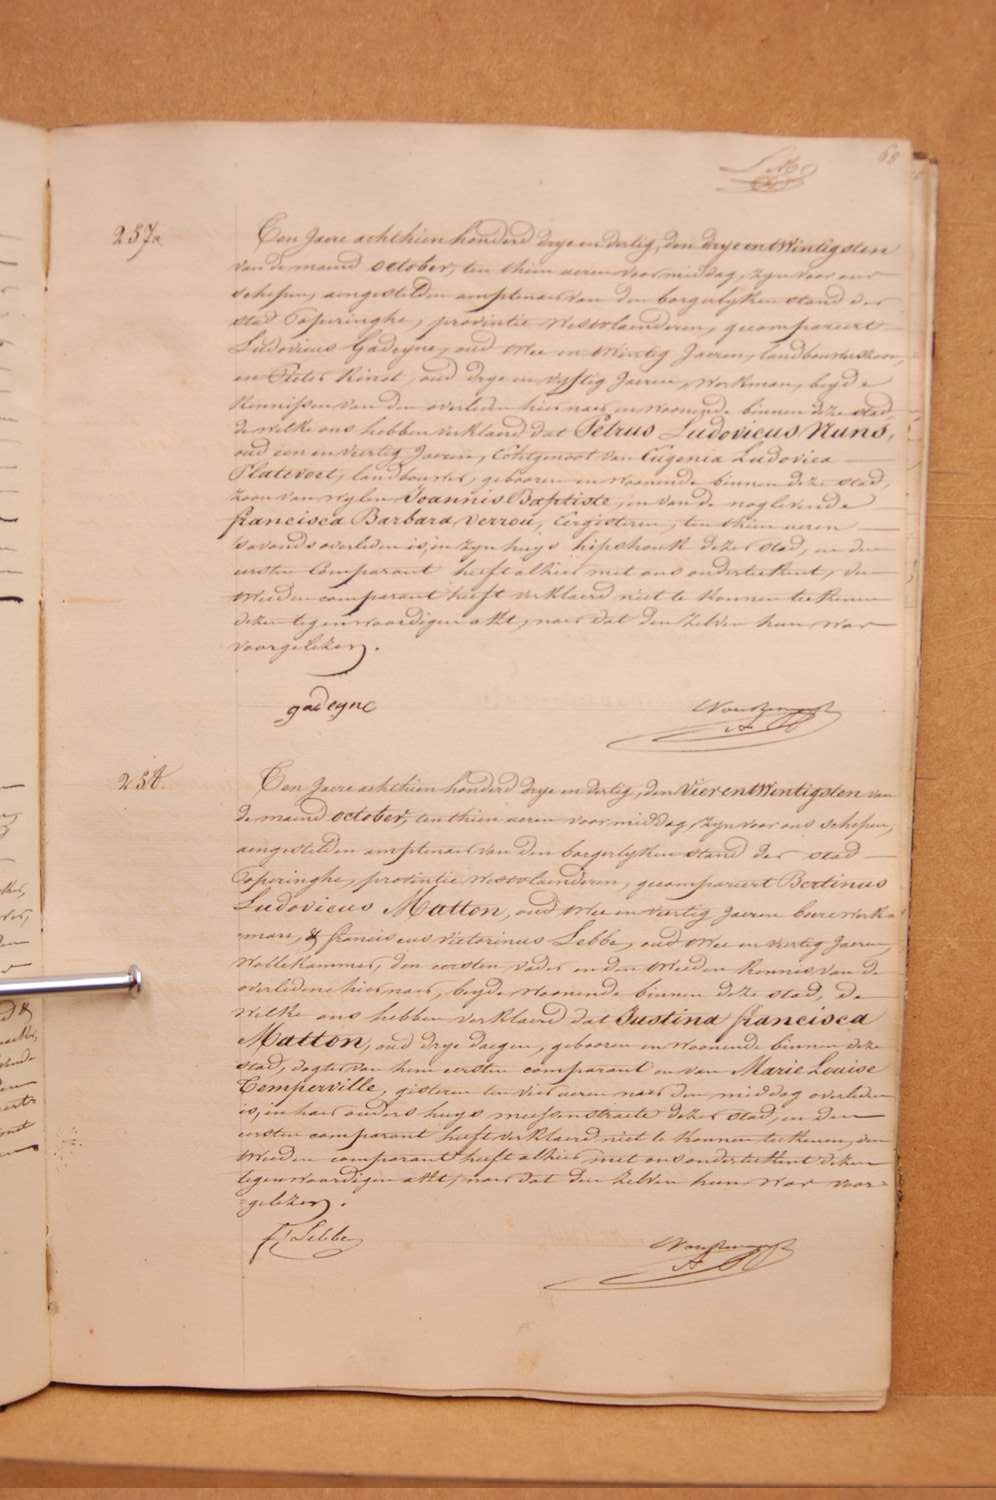 68
257
Den Jaere achthien honderd drye en dertig, den drye en twintigsten
van de maend october, ten thien ueren voor middag, zyn voor ons
schepen, aengestelden amptenaer van den borgerlyken stand der
stad Poperinghe, provintie Westvlaenderen, gecompareert
Ludovicus Gadeyne, oud twee en twintig Jaeren, landbouwerszoon,
en Pieter Rinet, oud drye en vyftig Jaeren, workman, beyde
kennissen van den overleden hier naer, en woonende binnen deze stad,
de welke ons hebben verklaerd dat Petrus Ludovicus Nuns,
oud een en veertig Jaeren, Echtgenoot van Eugenia Ludovica
Platevoet, landbouwer, gebooren en woonende binnen deze stad,
zoon van wylen Joannis Baptiste, en van de naglevende
francisca Barbara Verrou, Eergisteren, ten thien ueren
s'avonds overleden is, in zyn huys hipshouk dezer stad, en den
eersten Comparant heeft alhier met ons onderteekent, den
tweeden comparant heeft verklaerd niet te konnen teekenen
dezen tegenwoordigen akt, naer dat den zelven hun was
voorgelezen.
gadeyne
258.
Den Jaere achthien honderd drye en dertig, den vier en twintigsten van
de maend october, ten thien ueren voor middag, zyn voor ons schepen,
aengestelden amptenaer van den borgerlyken stand der stad
Poperinghe, provintie Westvlaenderen, gecompareert Bertinus
Ludovicus Matton, oud twee en veertig Jaeren boere werk-
man, & franciscus victorinus Lebbe, oud twee en veertig Jaeren,
wollekammer, den eersten vader en den tweeden kennis van de
overledene hier naer, beyde woonende binnen deze stad, de
welke ons hebben verklaerd dat Justina francisca
Matton, oud drye daegen, gebooren en woonende binnen deze
stad, dogter van hem eersten comparant en van Marie Louise
Temperville, gisteren ten vier ueren naer den middag overleden
is, in haer ouders huys meessenstraete dezer stad, en den
eersten comparant heeft verklaerd niet te konnen teekenen, den
tweeden comparant heeft alhier met ons onderteekent dezen
tegenwoordigen akt, naer dat den zelven hun was voor-
gelezen.
Lebbe